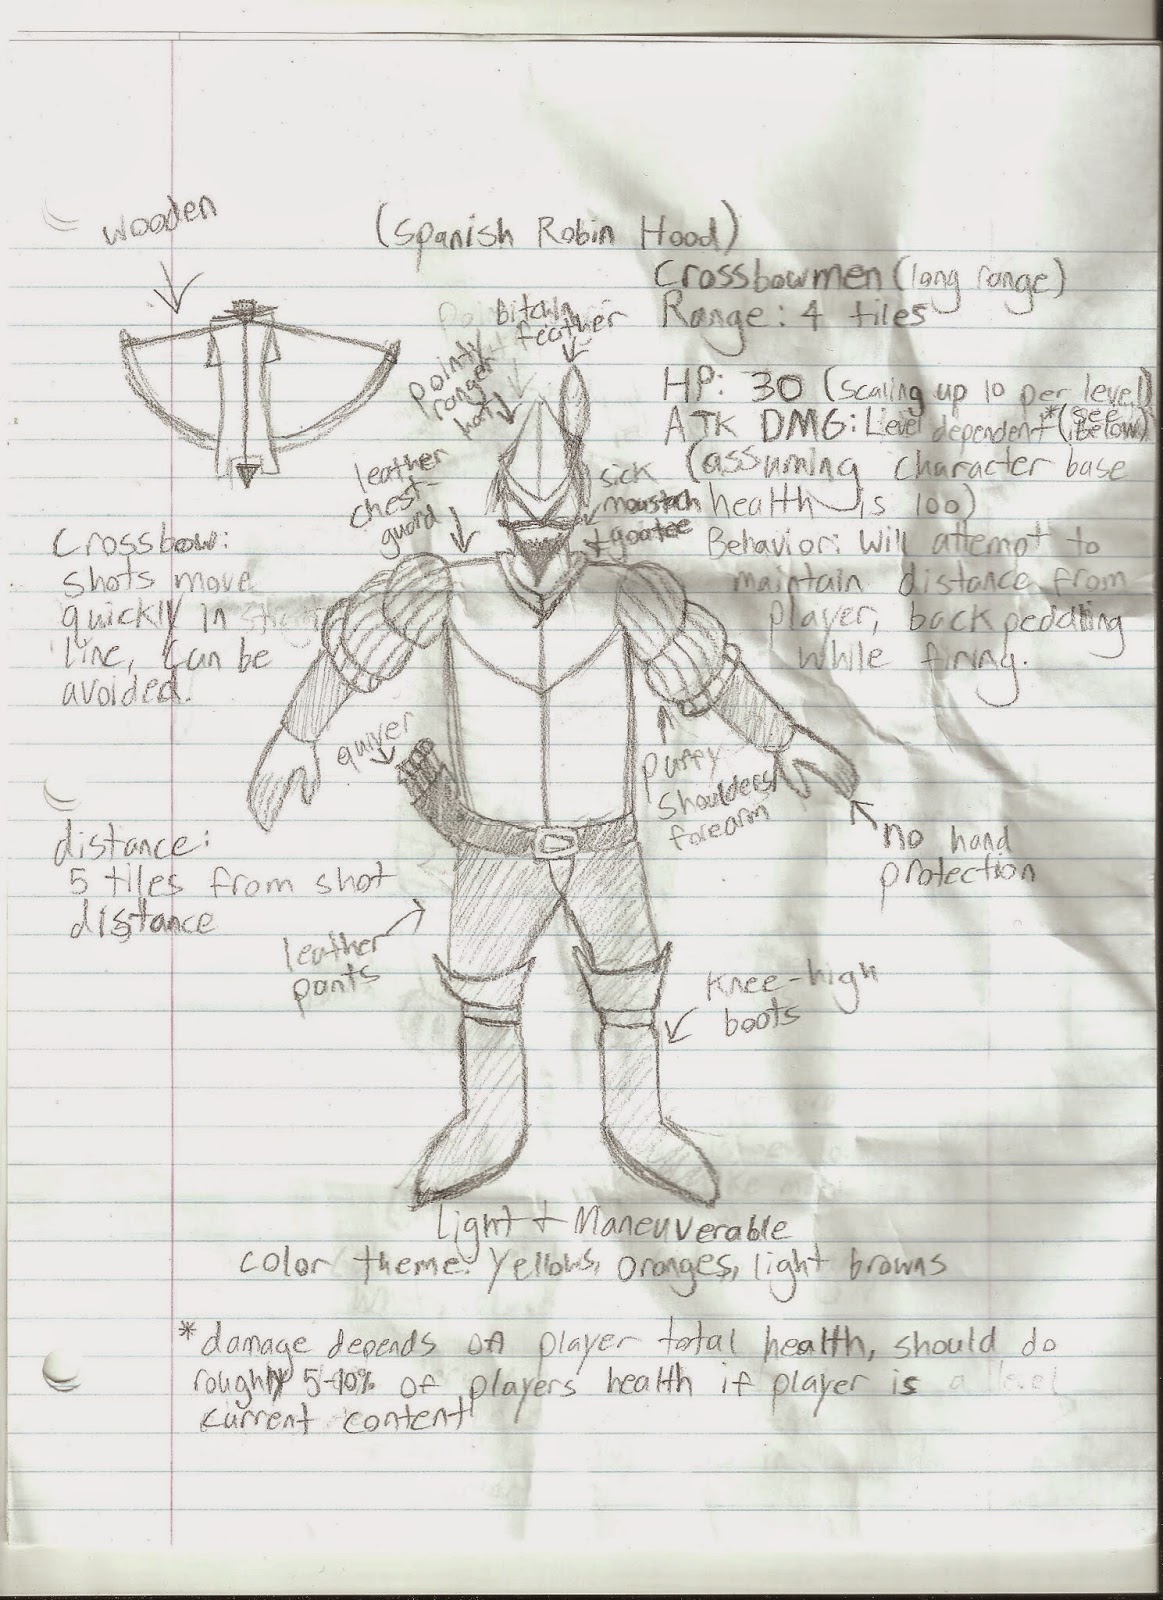 wooden
(Spanish Robin Hood)
Crossbowmen (long range)
Range: 4 tiles
Bitchin
feather
pointy
ranger
hat
HP: 30 (scaling up 10 per level)
ATK DMG: Level dependent* (see below)
(assuming character base
health is 100)
leather
chest-
guard
sick
moustach
+ goatee
Behavior: Will attempt to
maintain distance from
player, backpeddling
while firing.
Crossbow:
shots move
quickly in
line, can be
avoided.
quiver
puffy
shoulders/
forearm
no hand
protection
distance:
5 tiles from shot
distance
leather
pants
Knee-high
boots
Light + Maneuverable
color theme: Yellows, Oranges, light browns
*damage depends on player total health, should do
roughly 5-10% of players health if player is a level
current content